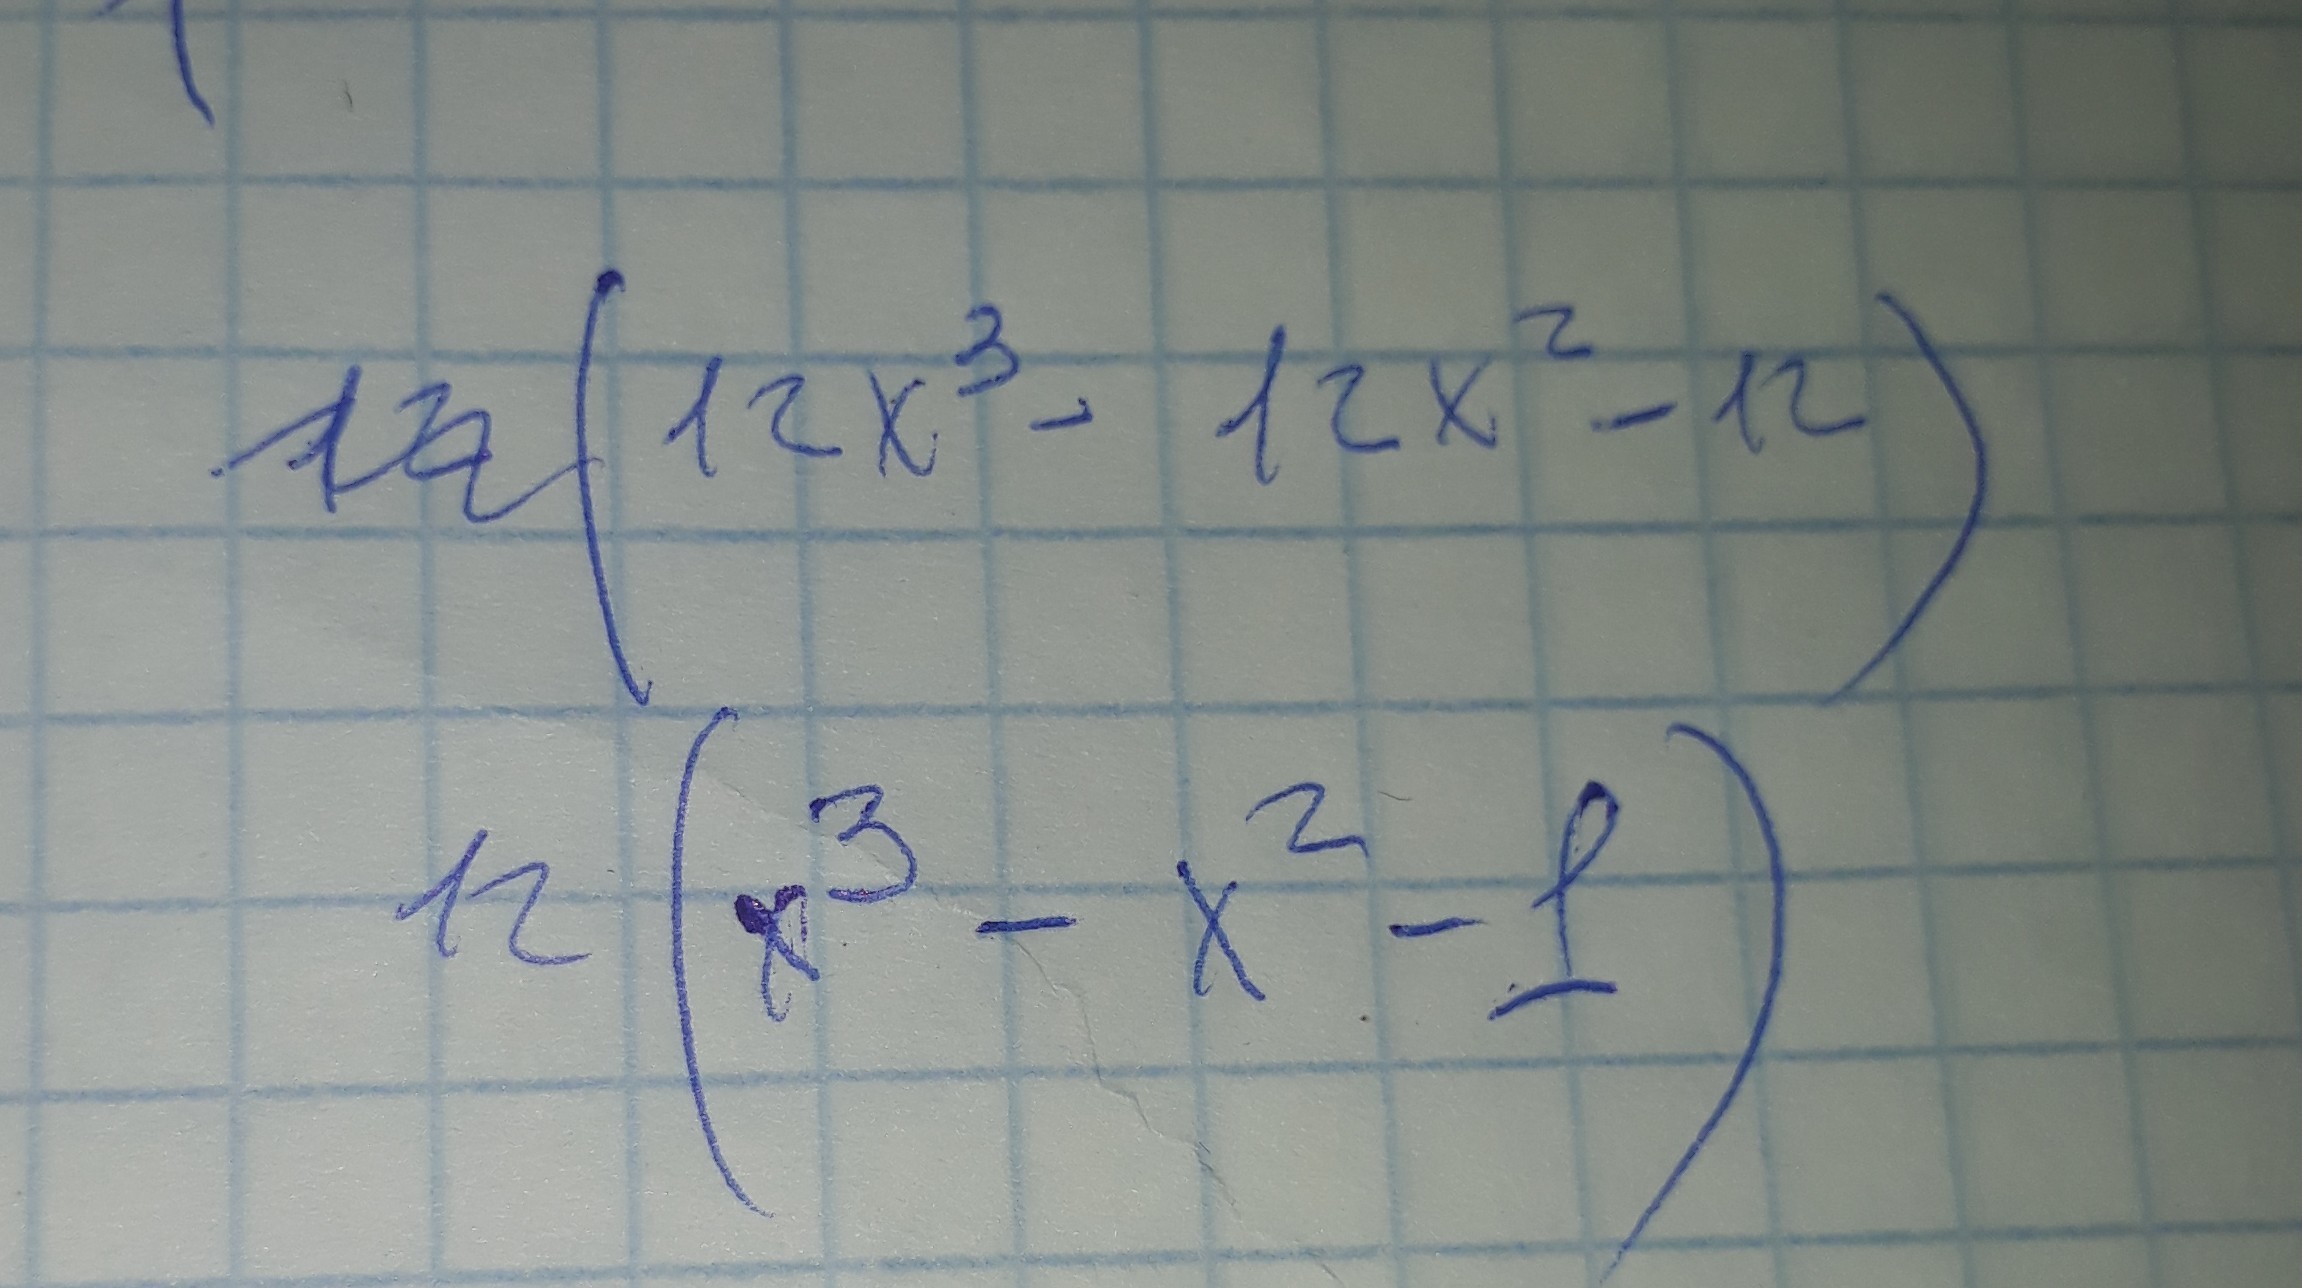 (12x³ - 12x² - 12)
12(x³ - x² - 1)